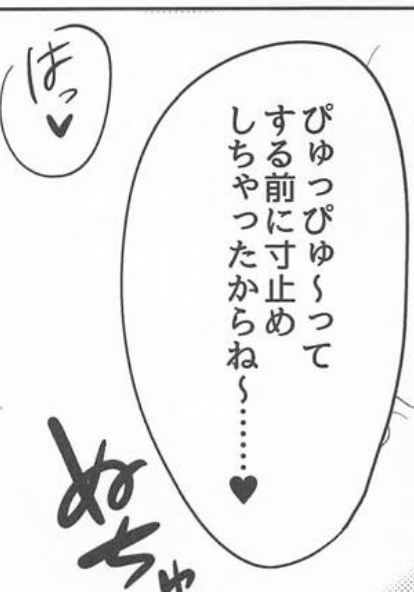 ぴゅっぴゅ～って
する前に寸止め
しちゃったからね～……♥
はっ♥
ぬちゅ